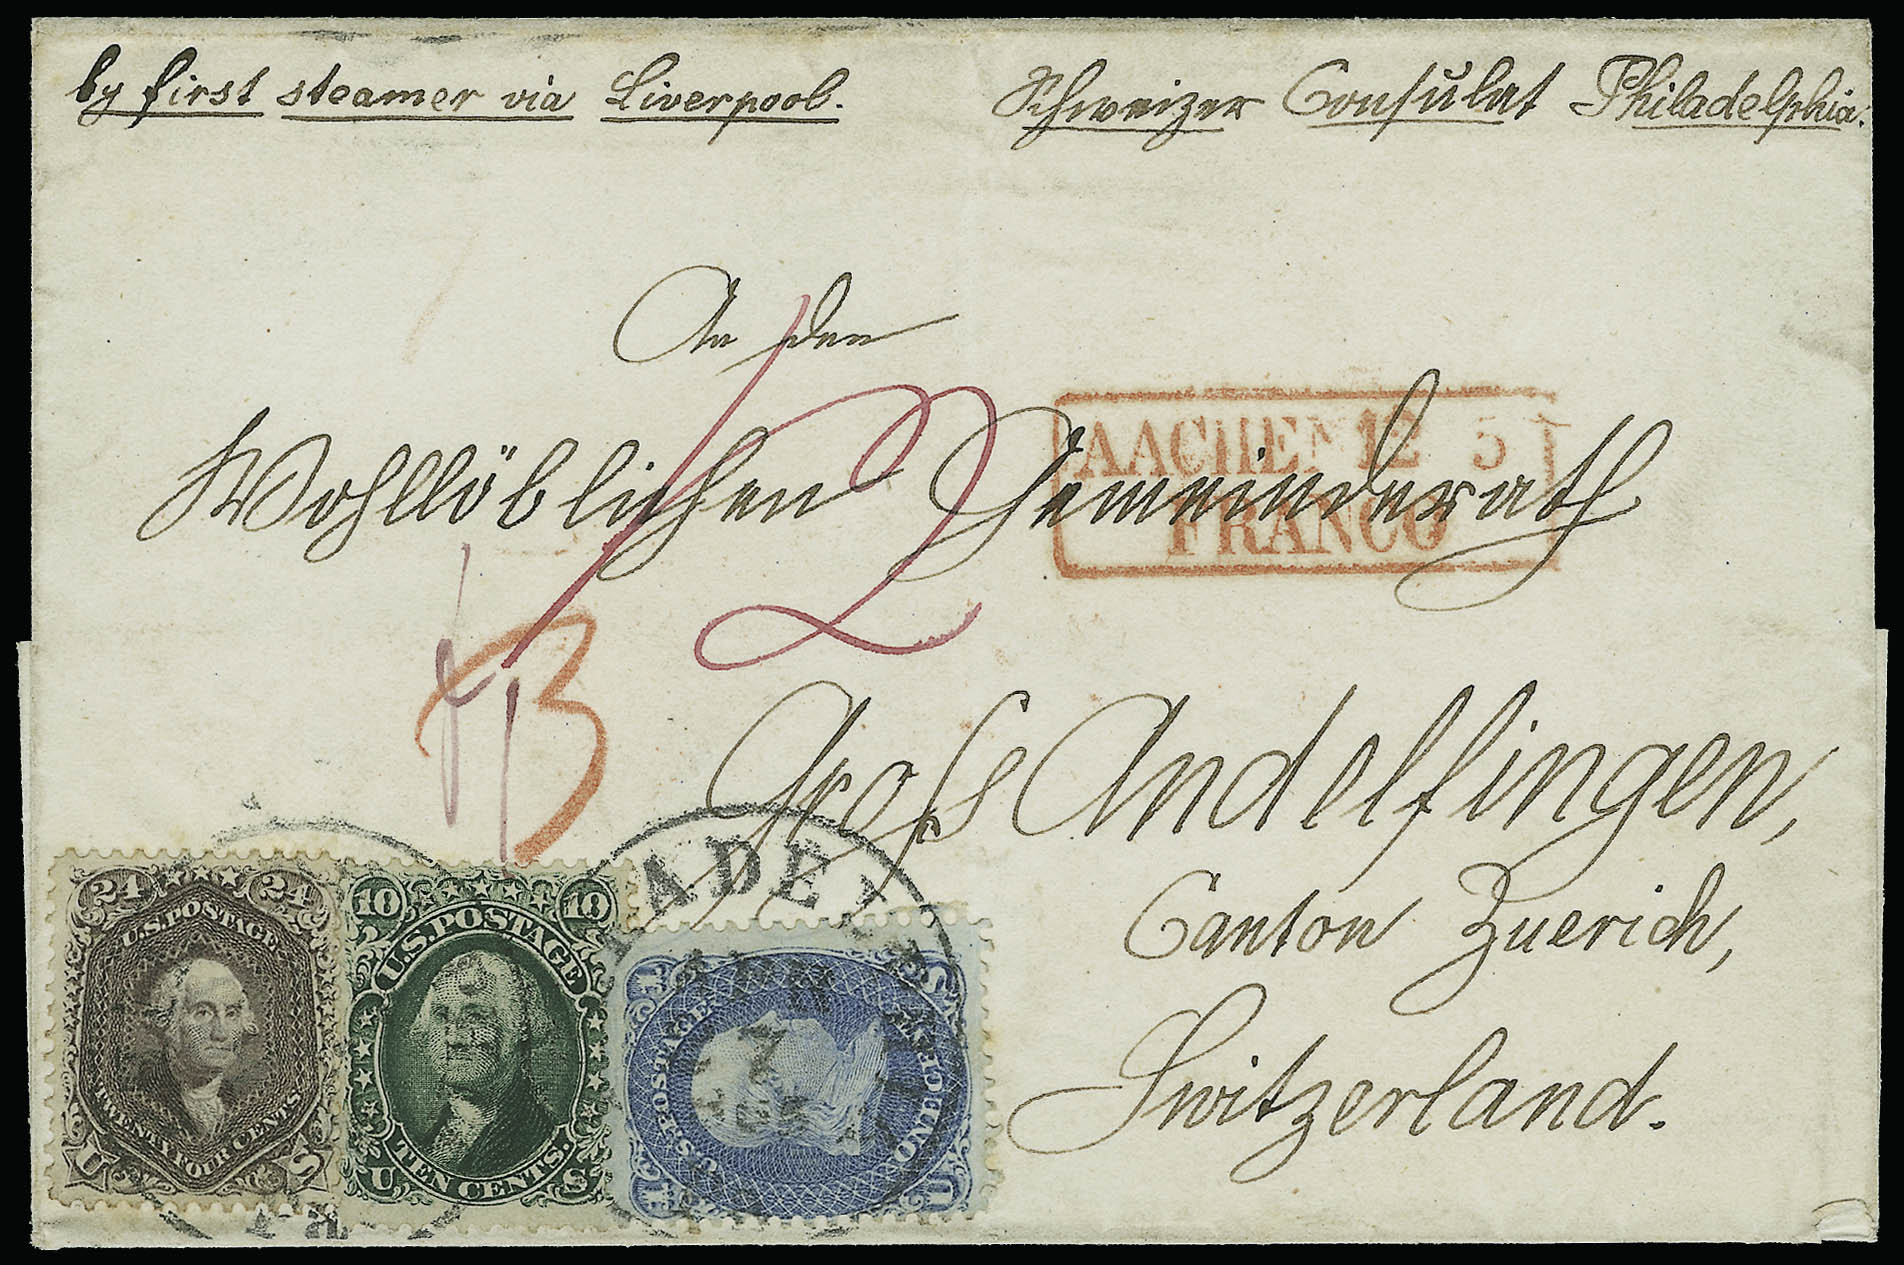 by first steamer via Liverpool.
Schweizer Consulat Philadelphia.
An den
Wohllöblichen Gemeinderath
AACHEN 12 5
FRANCO
12
3
Gross Andelfingen,
Canton Zuerich,
Switzerland.
ADE
24 24
U.S. POSTAGE
TWENTY FOUR CENTS.
U S
10 10
U.S. POSTAGE
TEN CENTS.
U S
1 1
U.S. POSTAGE
ONE CENT
U S
7